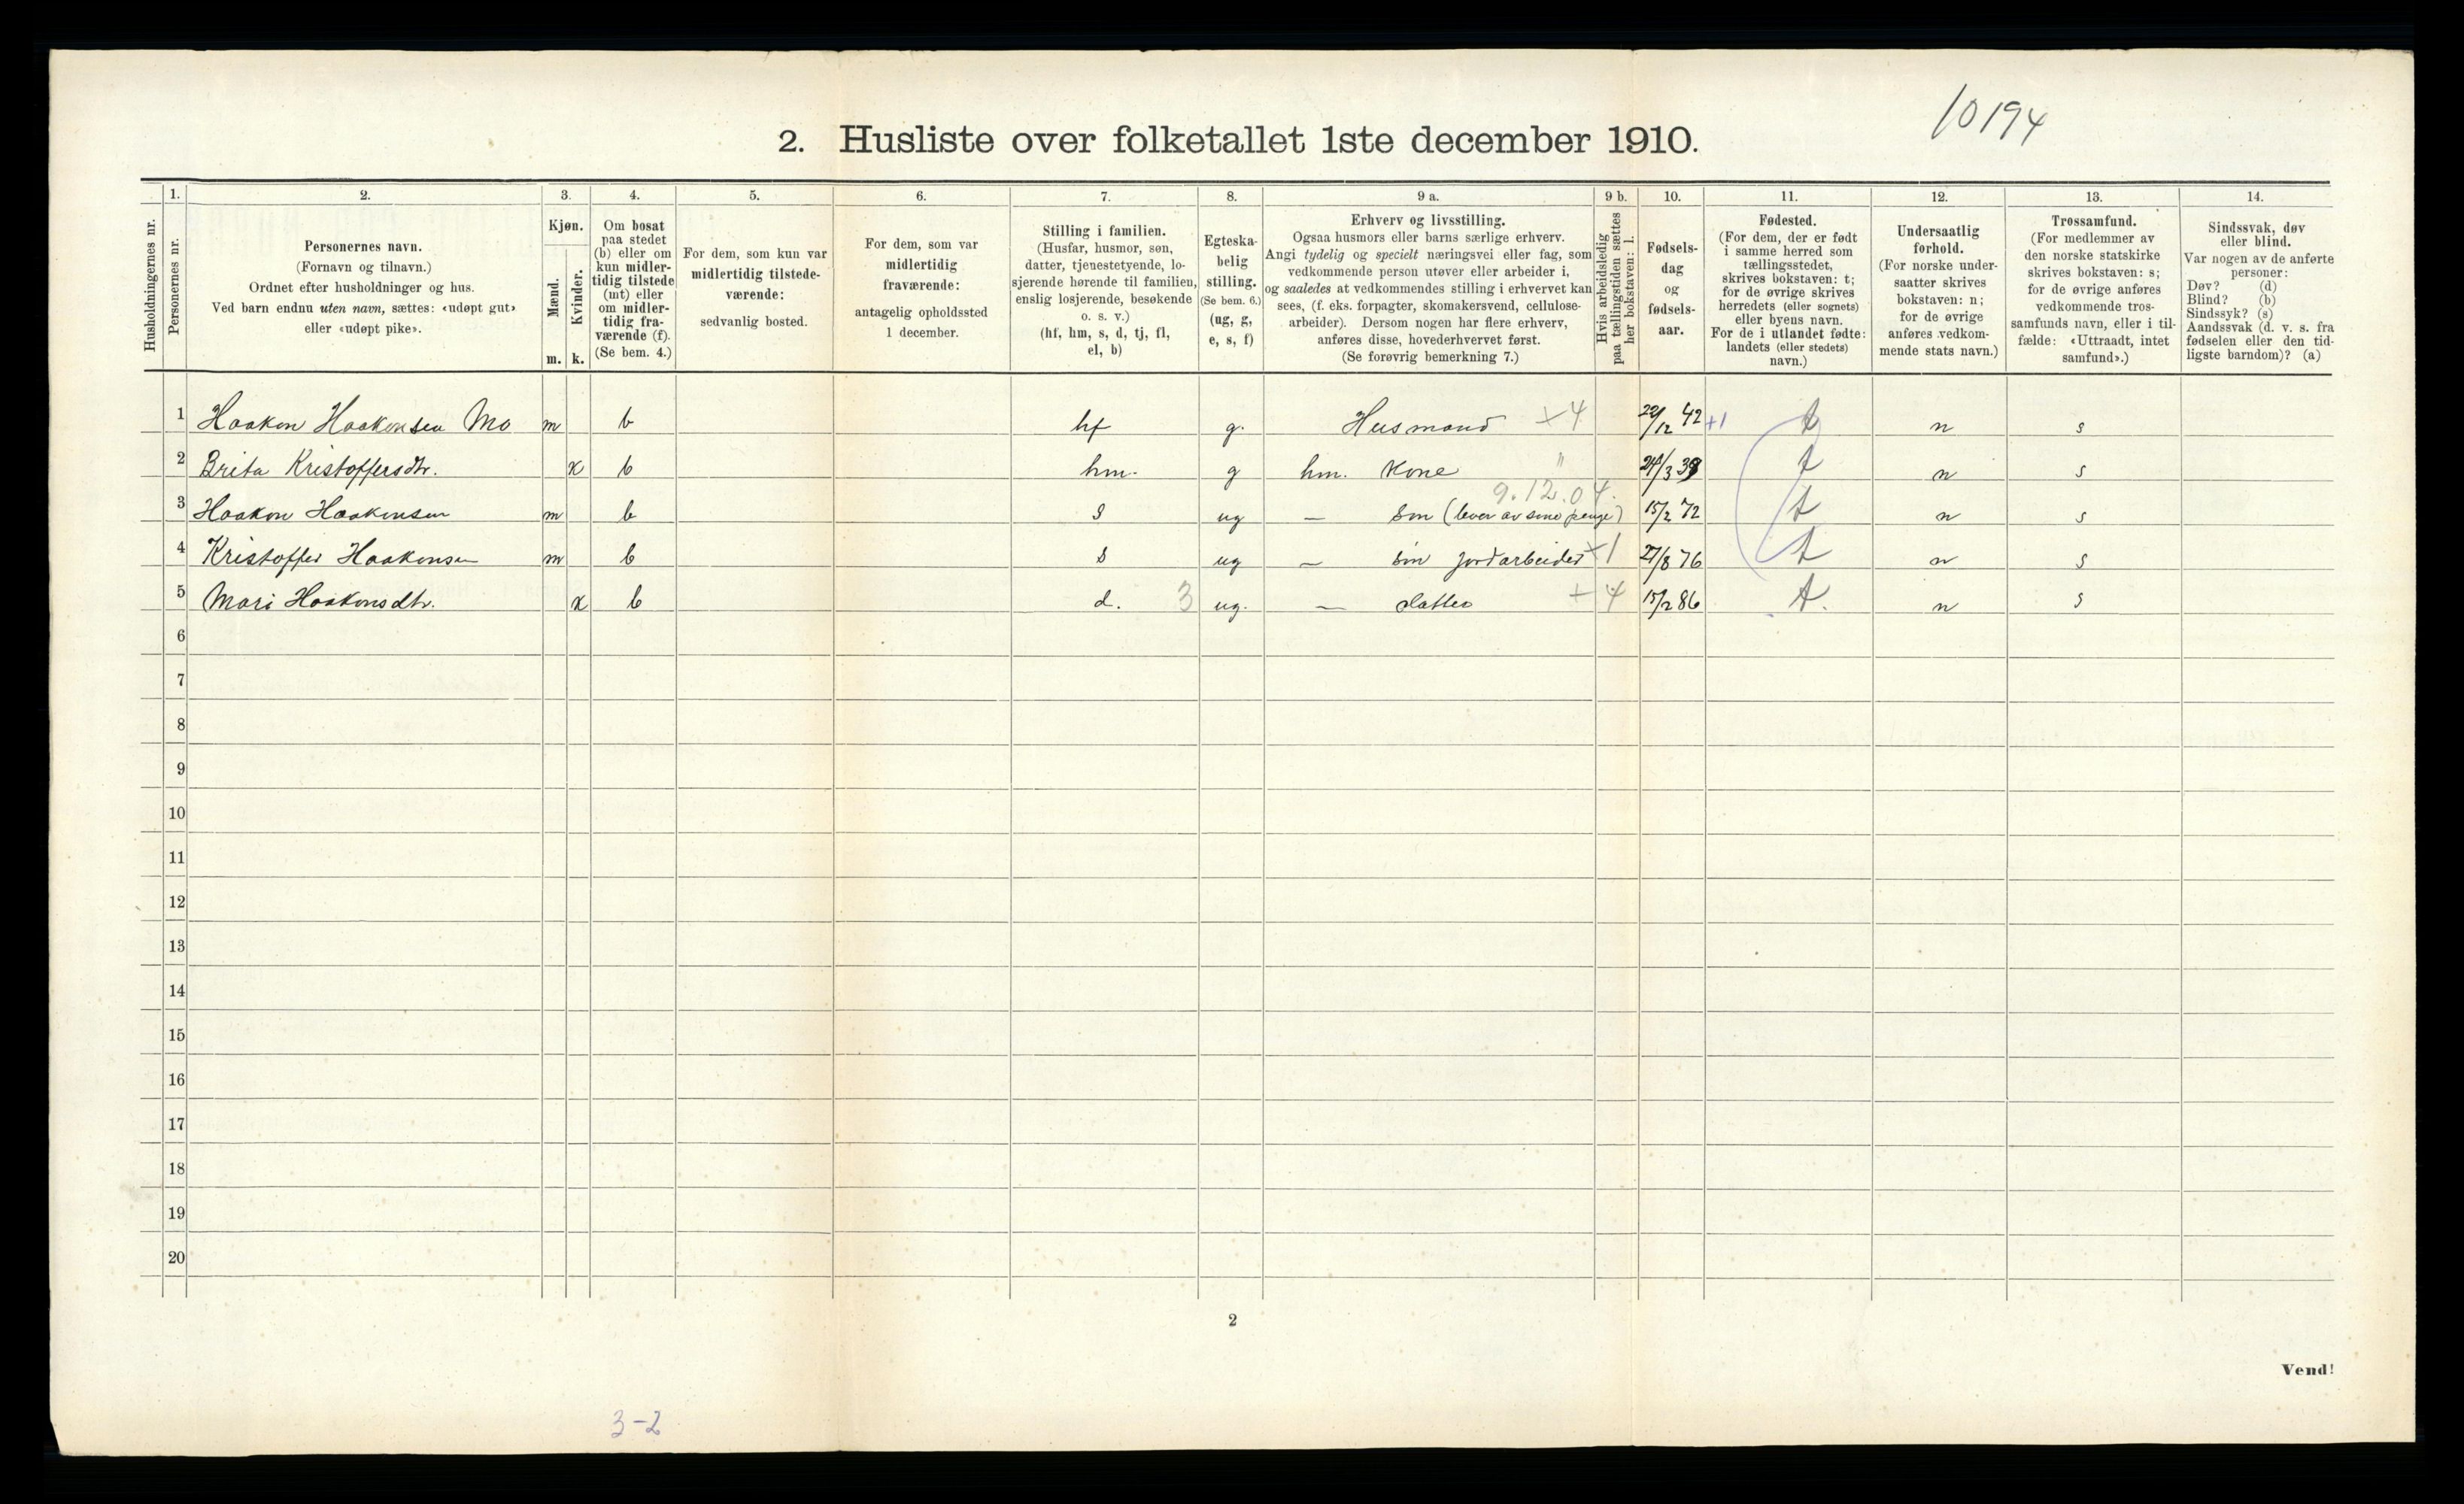 10194
2. Husliste over folketallet 1ste december 1910.
1. 2. 3. 4. 5. 6. 7. 8. 9 a. 9 b. 10. 11. 12. 13. 14.
Husholdningernes nr.
Personernes nr.
Personernes navn.
(Fornavn og tilnavn.)
Ordnet efter husholdninger og hus.
Ved barn endnu uten navn, sættes: «udøpt gut»
eller «udøpt pike».
Kjøn.
Mænd.
Kvinder.
m. k.
Om bosat
paa stedet
(b) eller om
kun midler-
tidig tilstede
(mt) eller
om midler-
tidig fra-
værende (f).
(Se bem. 4.)
For dem, som kun var
midlertidig tilstede-
værende:
sedvanlig bosted.
For dem, som var
midlertidig
fraværende:
antagelig opholdssted
1 december.
Stilling i familien.
(Husfar, husmor, søn,
datter, tjenestetyende, lo-
sjerende hørende til familien,
enslig losjerende, besøkende
o. s. v.)
(hf, hm, s, d, tj, fl,
el, b)
Egteska-
belig
stilling.
(Se bem. 6.)
(ug, g,
e, s, f)
Erhverv og livsstilling.
Ogsaa husmors eller barns særlige erhverv.
Angi tydelig og specielt næringsvei eller fag, som
vedkommende person utøver eller arbeider i,
og saaledes at vedkommendes stilling i erhvervet kan
sees, (f. eks. forpagter, skomakersvend, cellulose-
arbeider). Dersom nogen har flere erhverv,
anføres disse, hovederhvervet først.
(Se forøvrig bemerkning 7.)
Hvis arbeidsledig
paa tællingstiden sættes
her bokstaven: l.
Fødsels-
dag
og
fødsels-
aar.
Fødested.
(For dem, der er født
i samme herred som
tællingsstedet,
skrives bokstaven: t;
for de øvrige skrives
herredets (eller sognets)
eller byens navn.
For de i utlandet fødte:
landets (eller stedets)
navn.)
Undersaatlig
forhold.
(For norske under-
saatter skrives
bokstaven: n;
for de øvrige
anføres vedkom-
mende stats navn.)
Trossamfund.
(For medlemmer av
den norske statskirke
skrives bokstaven: s;
for de øvrige anføres
vedkommende tros-
samfunds navn, eller i til-
fælde: «Uttraadt, intet
samfund».)
Sindssvak, døv
eller blind.
Var nogen av de anførte
personer:
Døv? (d)
Blind? (b)
Sindssyk? (s)
Aandssvak (d. v. s. fra
fødselen eller den tid-
ligste barndom)? (a)
1 Haakon Haakonsen Mo m b hf g. Husmand +4 22/12 42 +1 t n s
2 Brita Kristoffersdtr. k b hm. g hm. Kone " 24/3 38 t n s
9.12.04.
3 Haakon Haakonsen m b s ug — Søn (lever av sine penge) 15/2 72 t n s
4 Kristoffer Haakonsen m b s ug — søn jordarbeider +1 27/8 76 t n s
5 Mari Haakonsdtr. k b d. 3 ug. — datter + 4 15/2 86 t. n s
6
7
8
9
10
11
12
13
14
15
16
17
18
19
20
2
Vend!
3-2